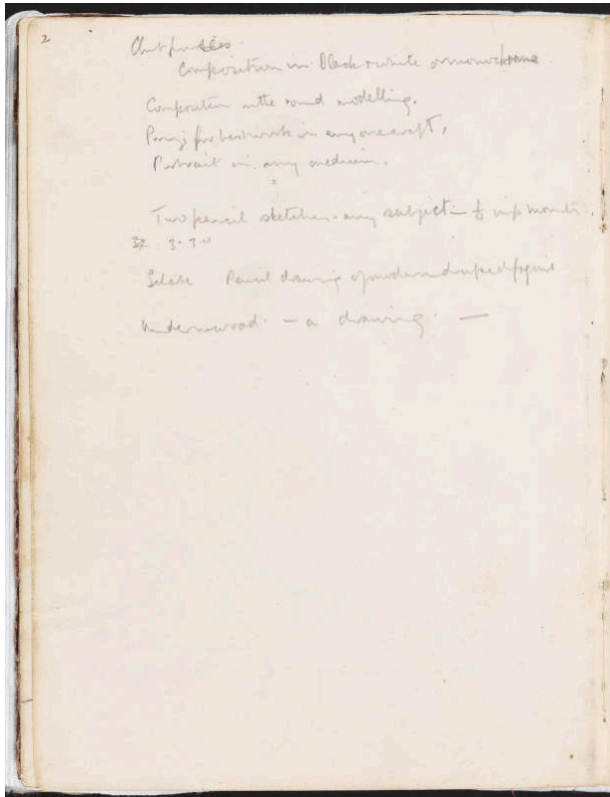 2
Club prizes.
Composition in Black & white or monochrome
Composition in the round modelling.
Prize for best work in any one craft,
Portrait in any medium.
Two pencil sketches - any subject - ½ imp mounts
3.30
Pencil drawing of modern draped figure
Underwood - a drawing. —